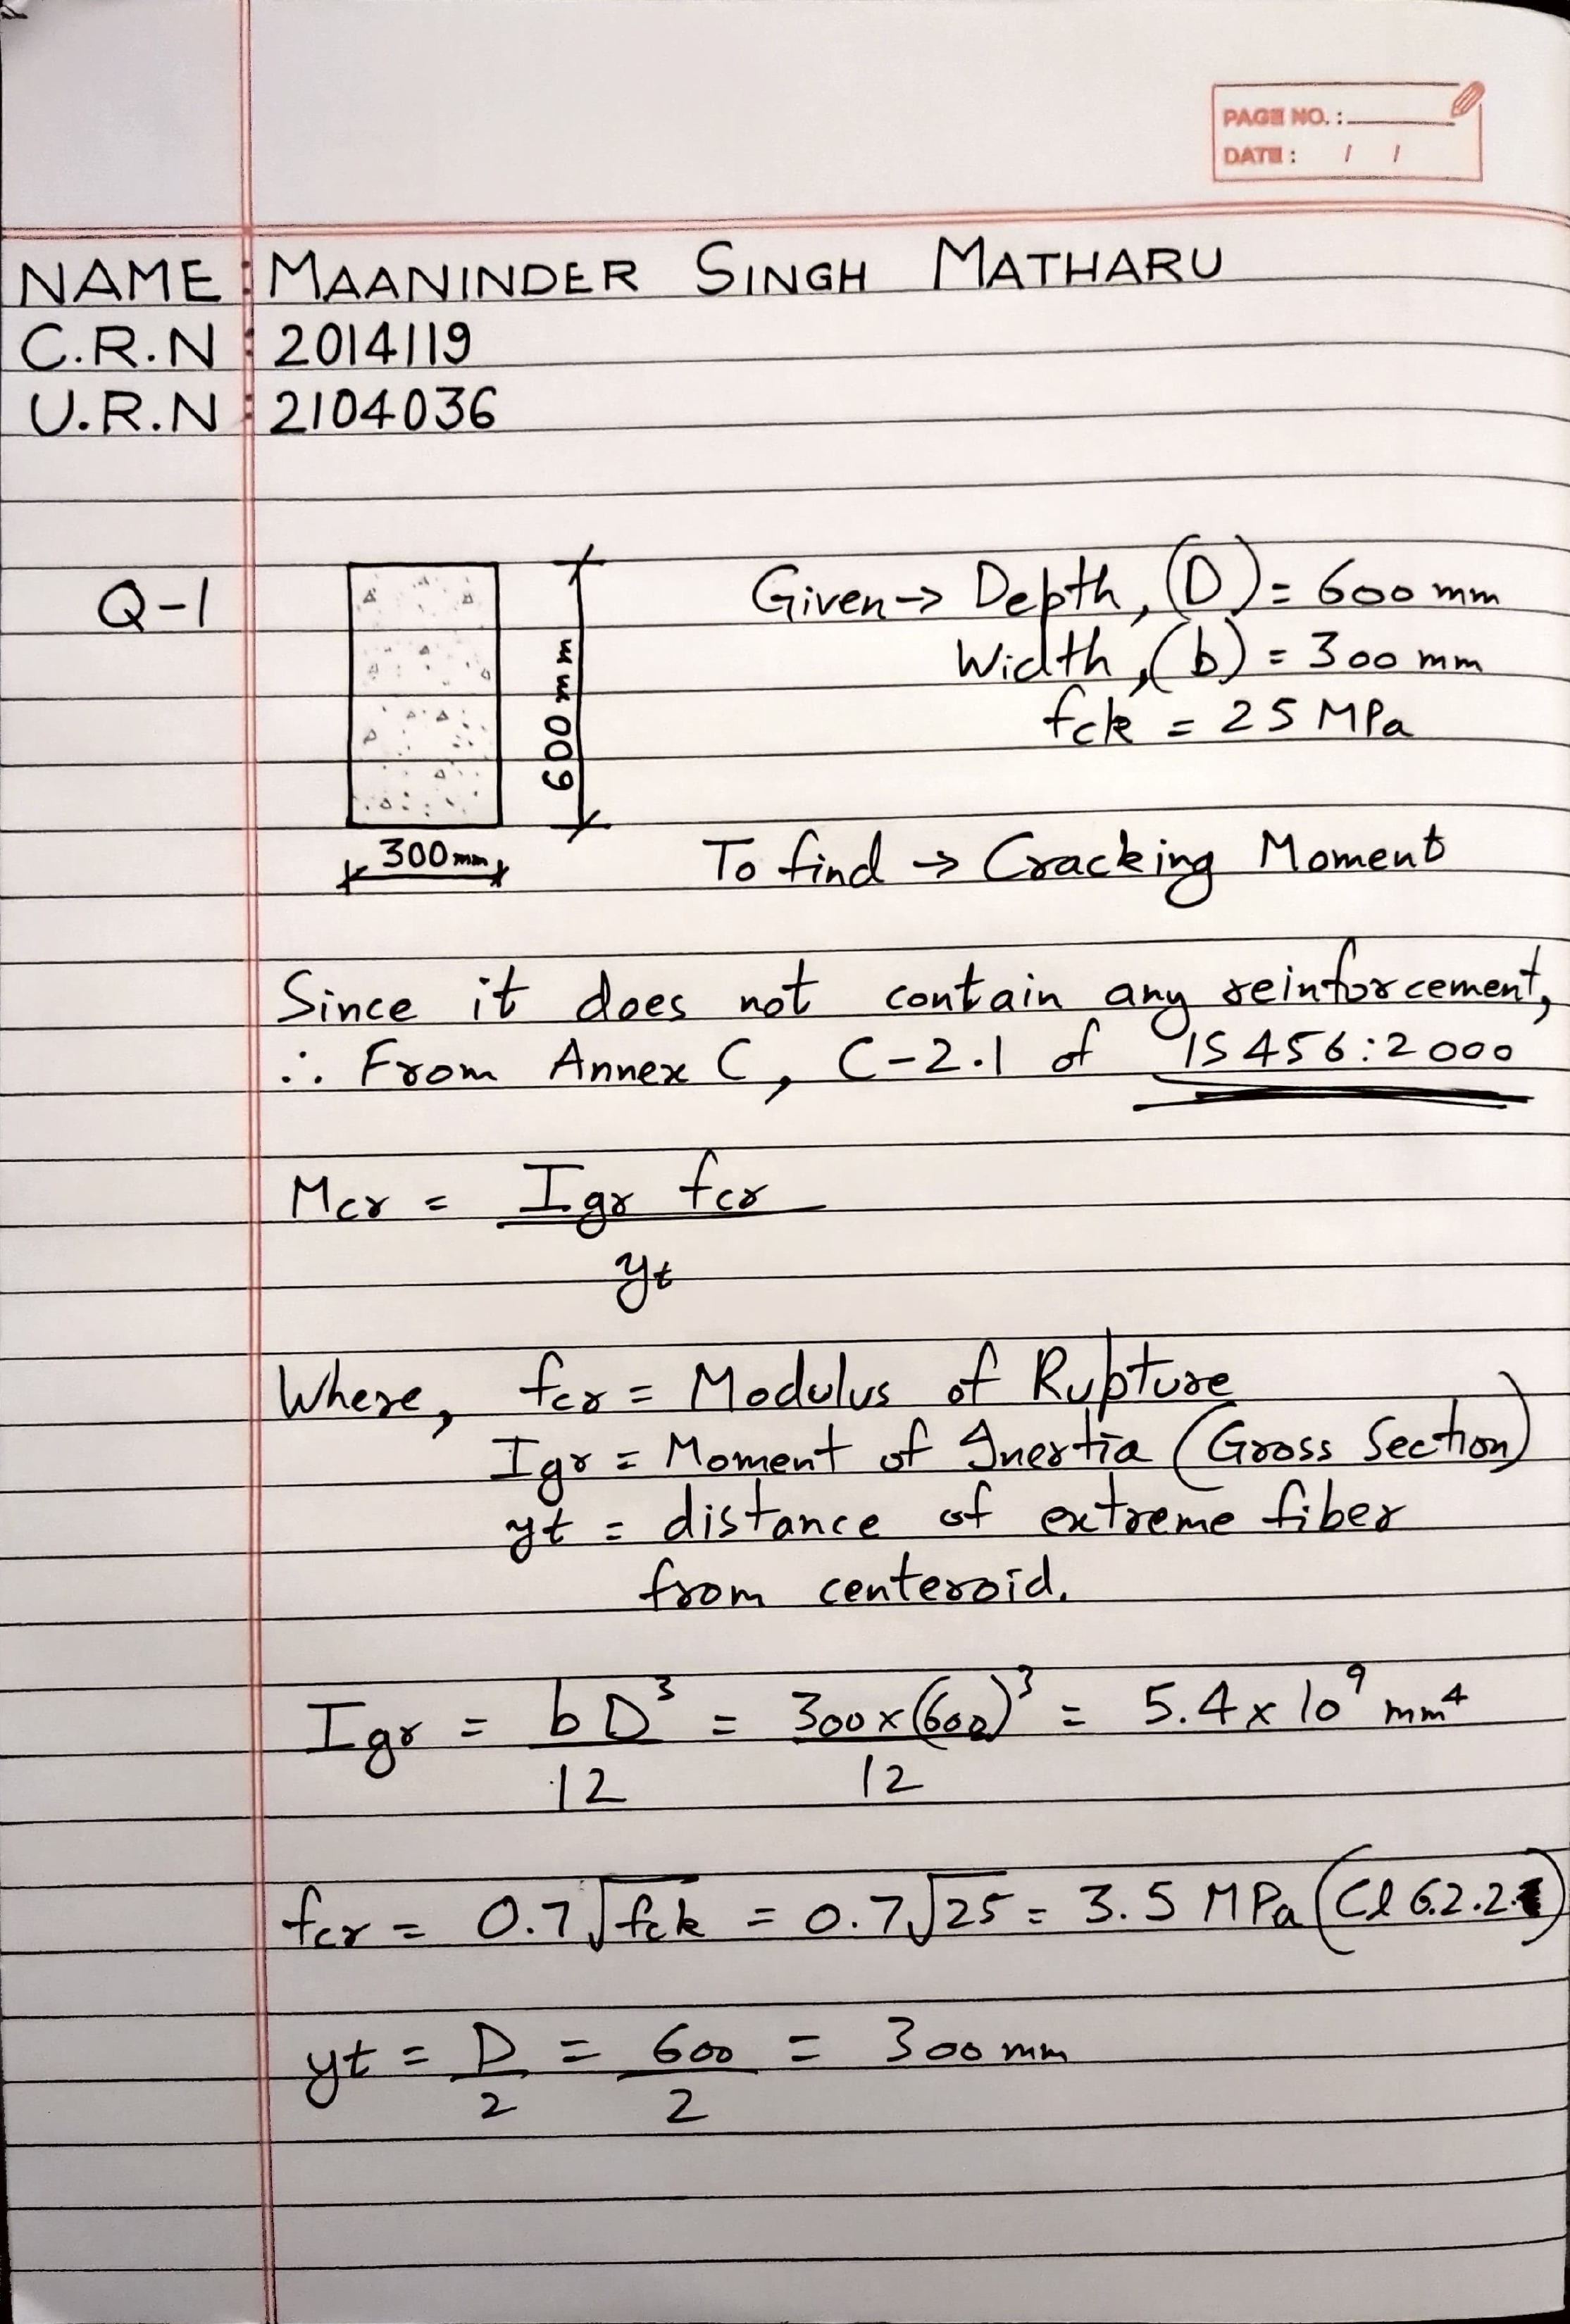 PAGE NO. :
DATE : / /
NAME : MAANINDER SINGH MATHARU
C.R.N : 2014119
U.R.N : 2104036
Q-1
600 mm
300 mm
Given → Depth, (D) = 600 mm
Width, (b) = 300 mm
fck = 25 MPa
To find → Cracking Moment
Since it does not contain any reinforcement,
∴ From Annex C, C-2.1 of IS 456:2000
Mcr = Igr fcr / yt
Where, fcr = Modulus of Rupture
Igr = Moment of Inertia (Gross Section)
yt = distance of extreme fiber
from centeroid.
Igr = bD³/12 = 300×(600)³/12 = 5.4 × 10⁹ mm⁴
fcr = 0.7√fck = 0.7√25 = 3.5 MPa (Cl 6.2.2)
yt = D/2 = 600/2 = 300 mm